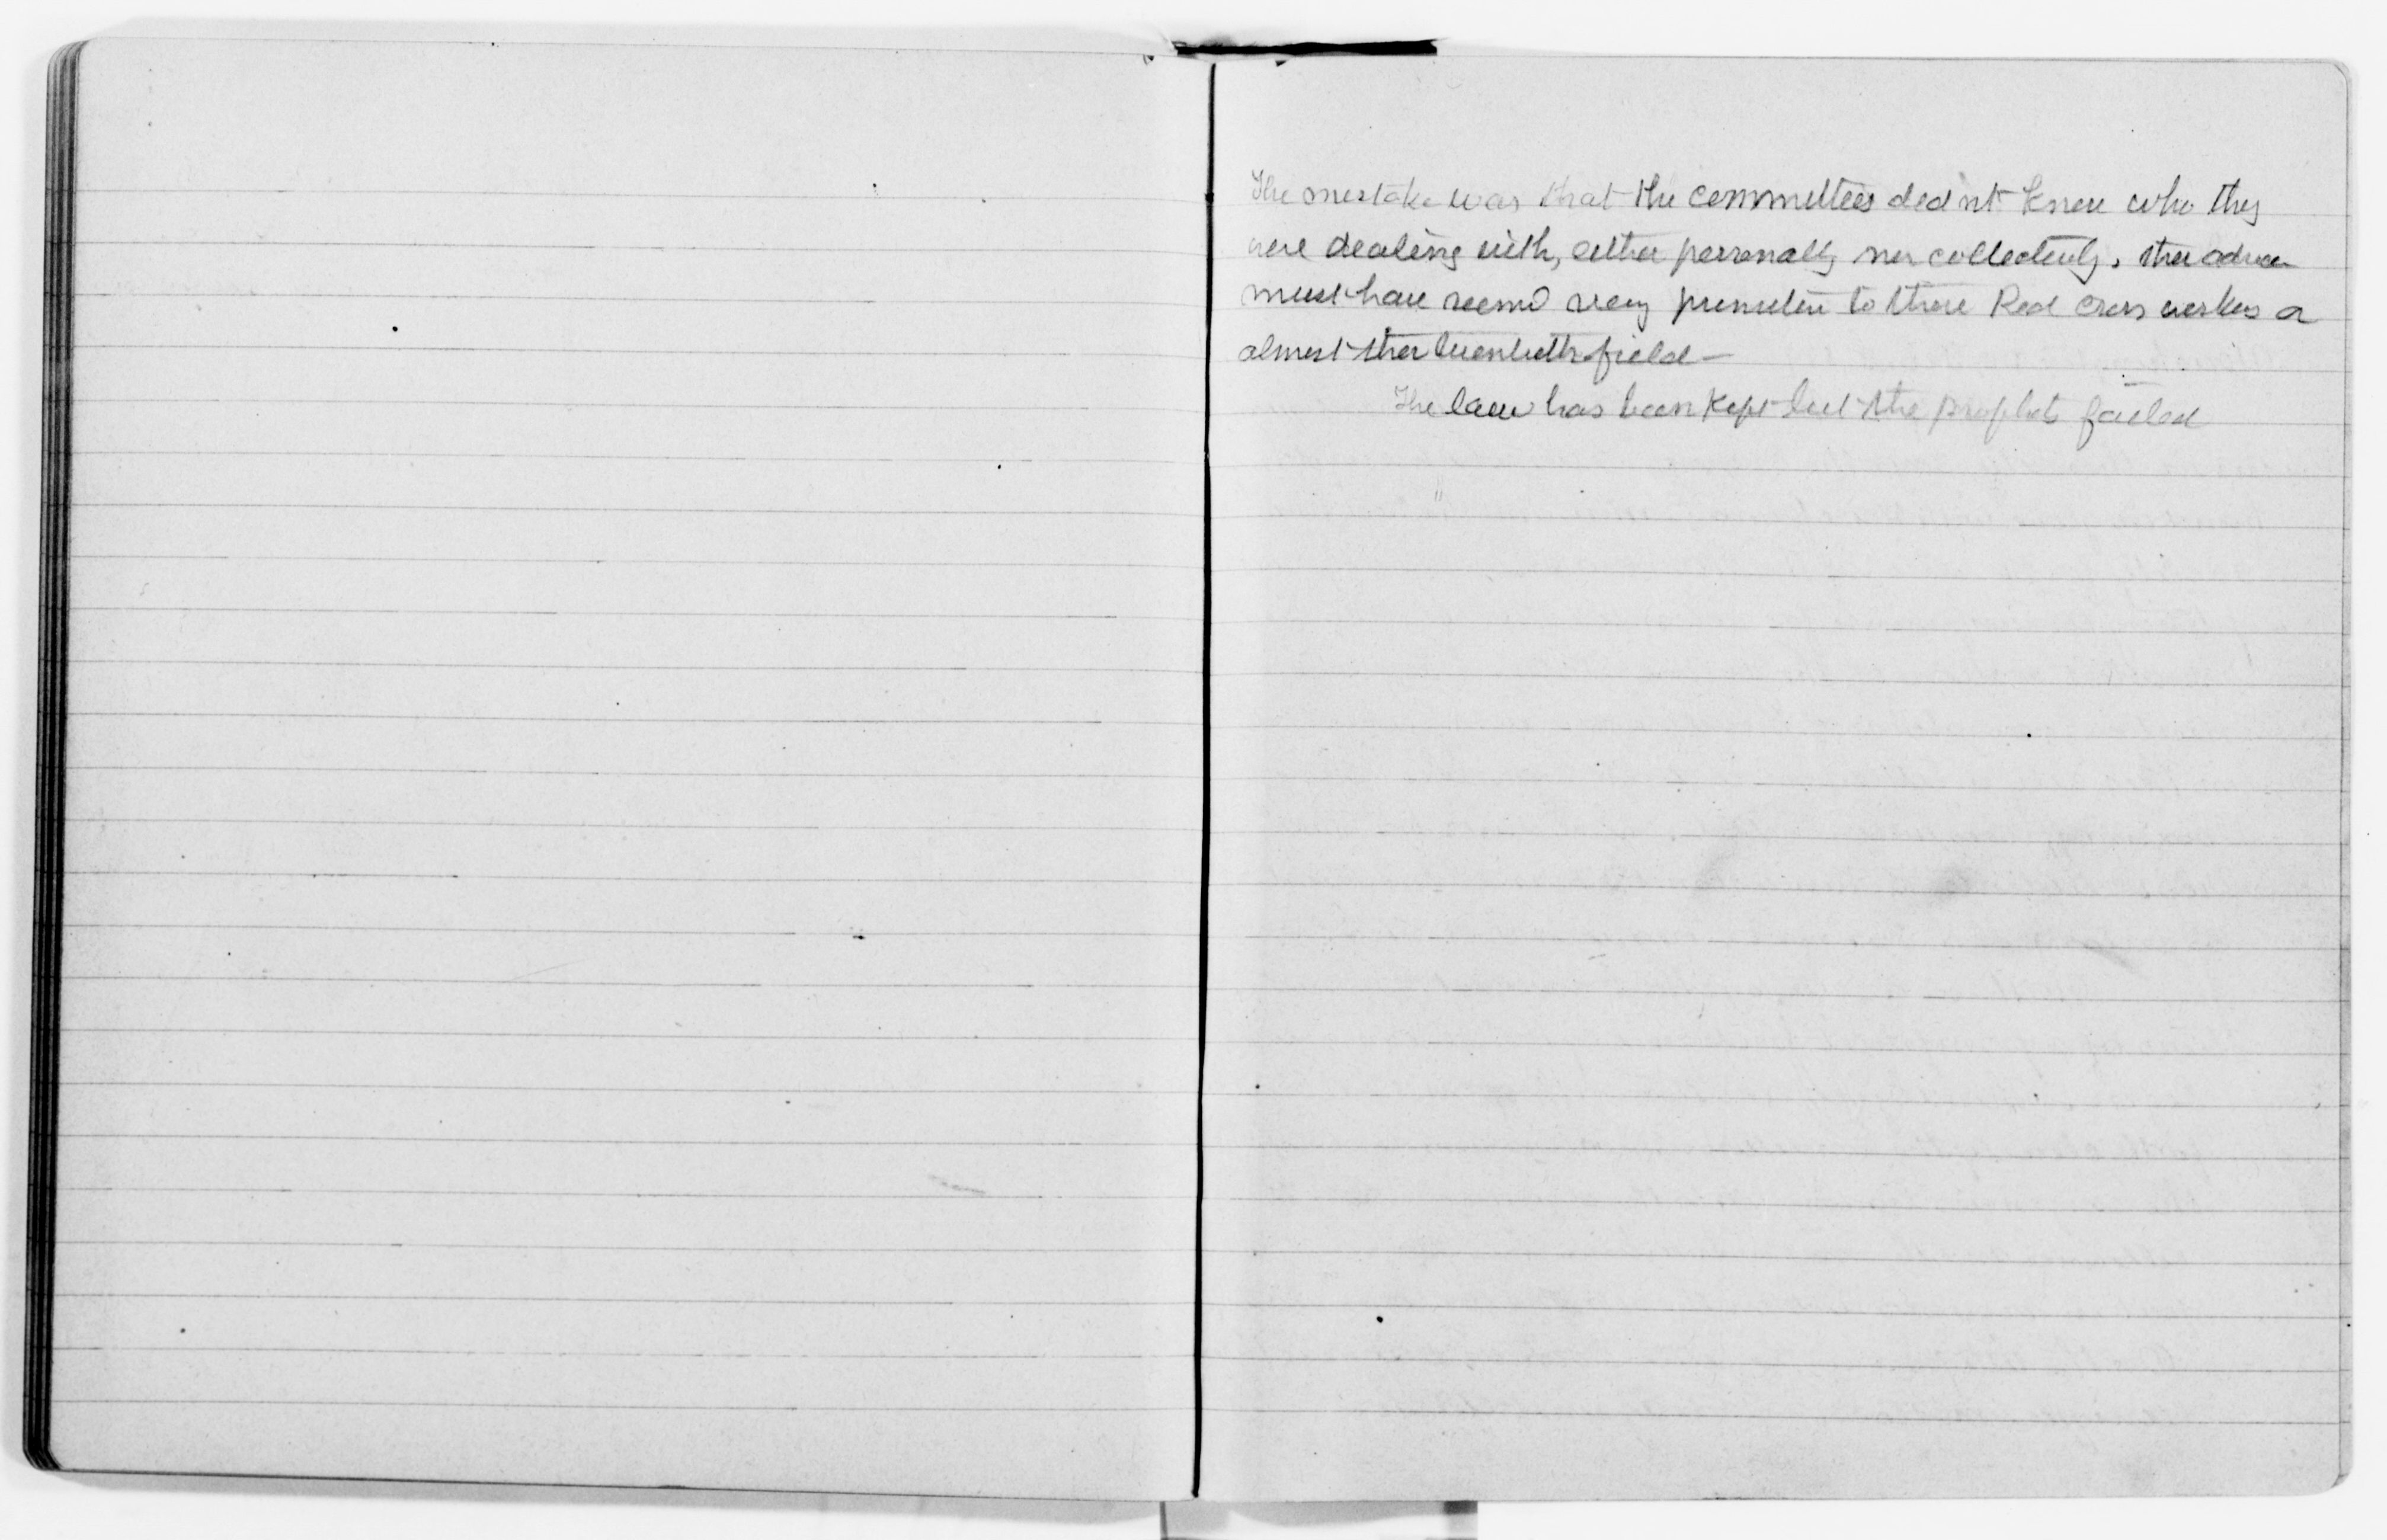 The mistake was that the committees did nt know who they
were dealing with, either personally nor collectively, their advice
must have seemd very primitive to these Red Cross workers
almost their twentieth field —
The law has been kept but the prophets failed